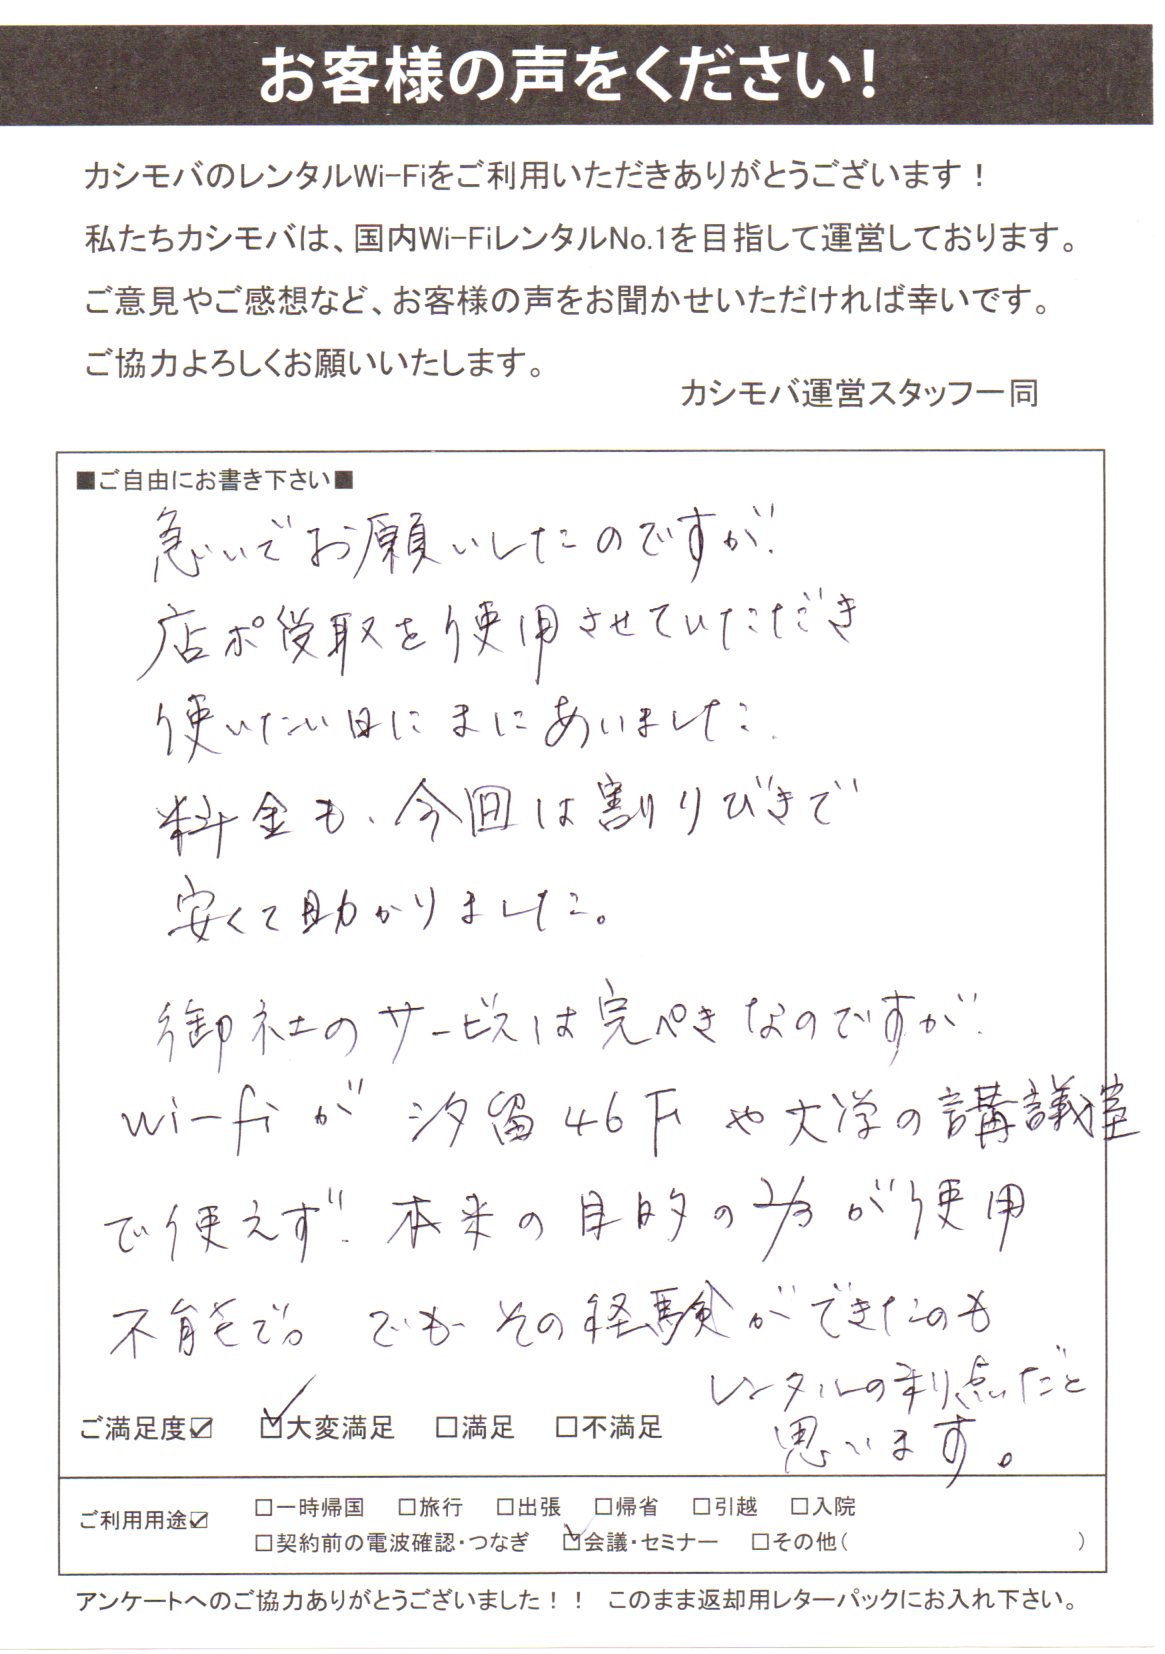 お客様の声をください！
カシモバのレンタルWi-Fiをご利用いただきありがとうございます！
私たちカシモバは、国内Wi-FiレンタルNo.1を目指して運営しております。
ご意見やご感想など、お客様の声をお聞かせいただければ幸いです。
ご協力よろしくお願いいたします。
カシモバ運営スタッフ一同
■ご自由にお書き下さい■
急いでお願いしたのですが、
店ポ受取を使用させていただき
使いたい日にまにあいました。
料金も、今回は割りびきで
安くて助かりました。
御社のサービスは完ぺきなのですが、
wi-fiが 汐留46F や大学の講議室
で使えず、本来の目的の2/3が使用
不能で。でも その経験ができたのも
レンタルの利点だと
思います。
ご満足度☑ ☑大変満足 □満足 □不満足
ご利用用途☑ □一時帰国 □旅行 □出張 □帰省 □引越 □入院
□契約前の電波確認・つなぎ ☑会議・セミナー □その他（ ）
アンケートへのご協力ありがとうございました！！ このまま返却用レターパックにお入れ下さい。